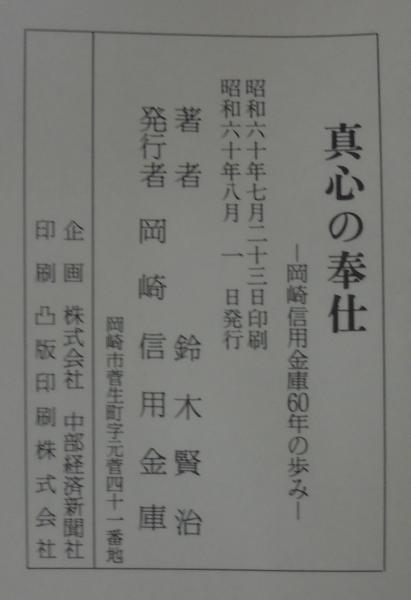 真心の奉仕
―岡崎信用金庫60年の歩み―
昭和六十年七月二十三日印刷
昭和六十年八月 一 日発行
著者 鈴木賢治
発行者 岡崎信用金庫
岡崎市菅生町字元菅四十一番地
企画 株式会社 中部経済新聞社
印刷 凸版印刷株式会社